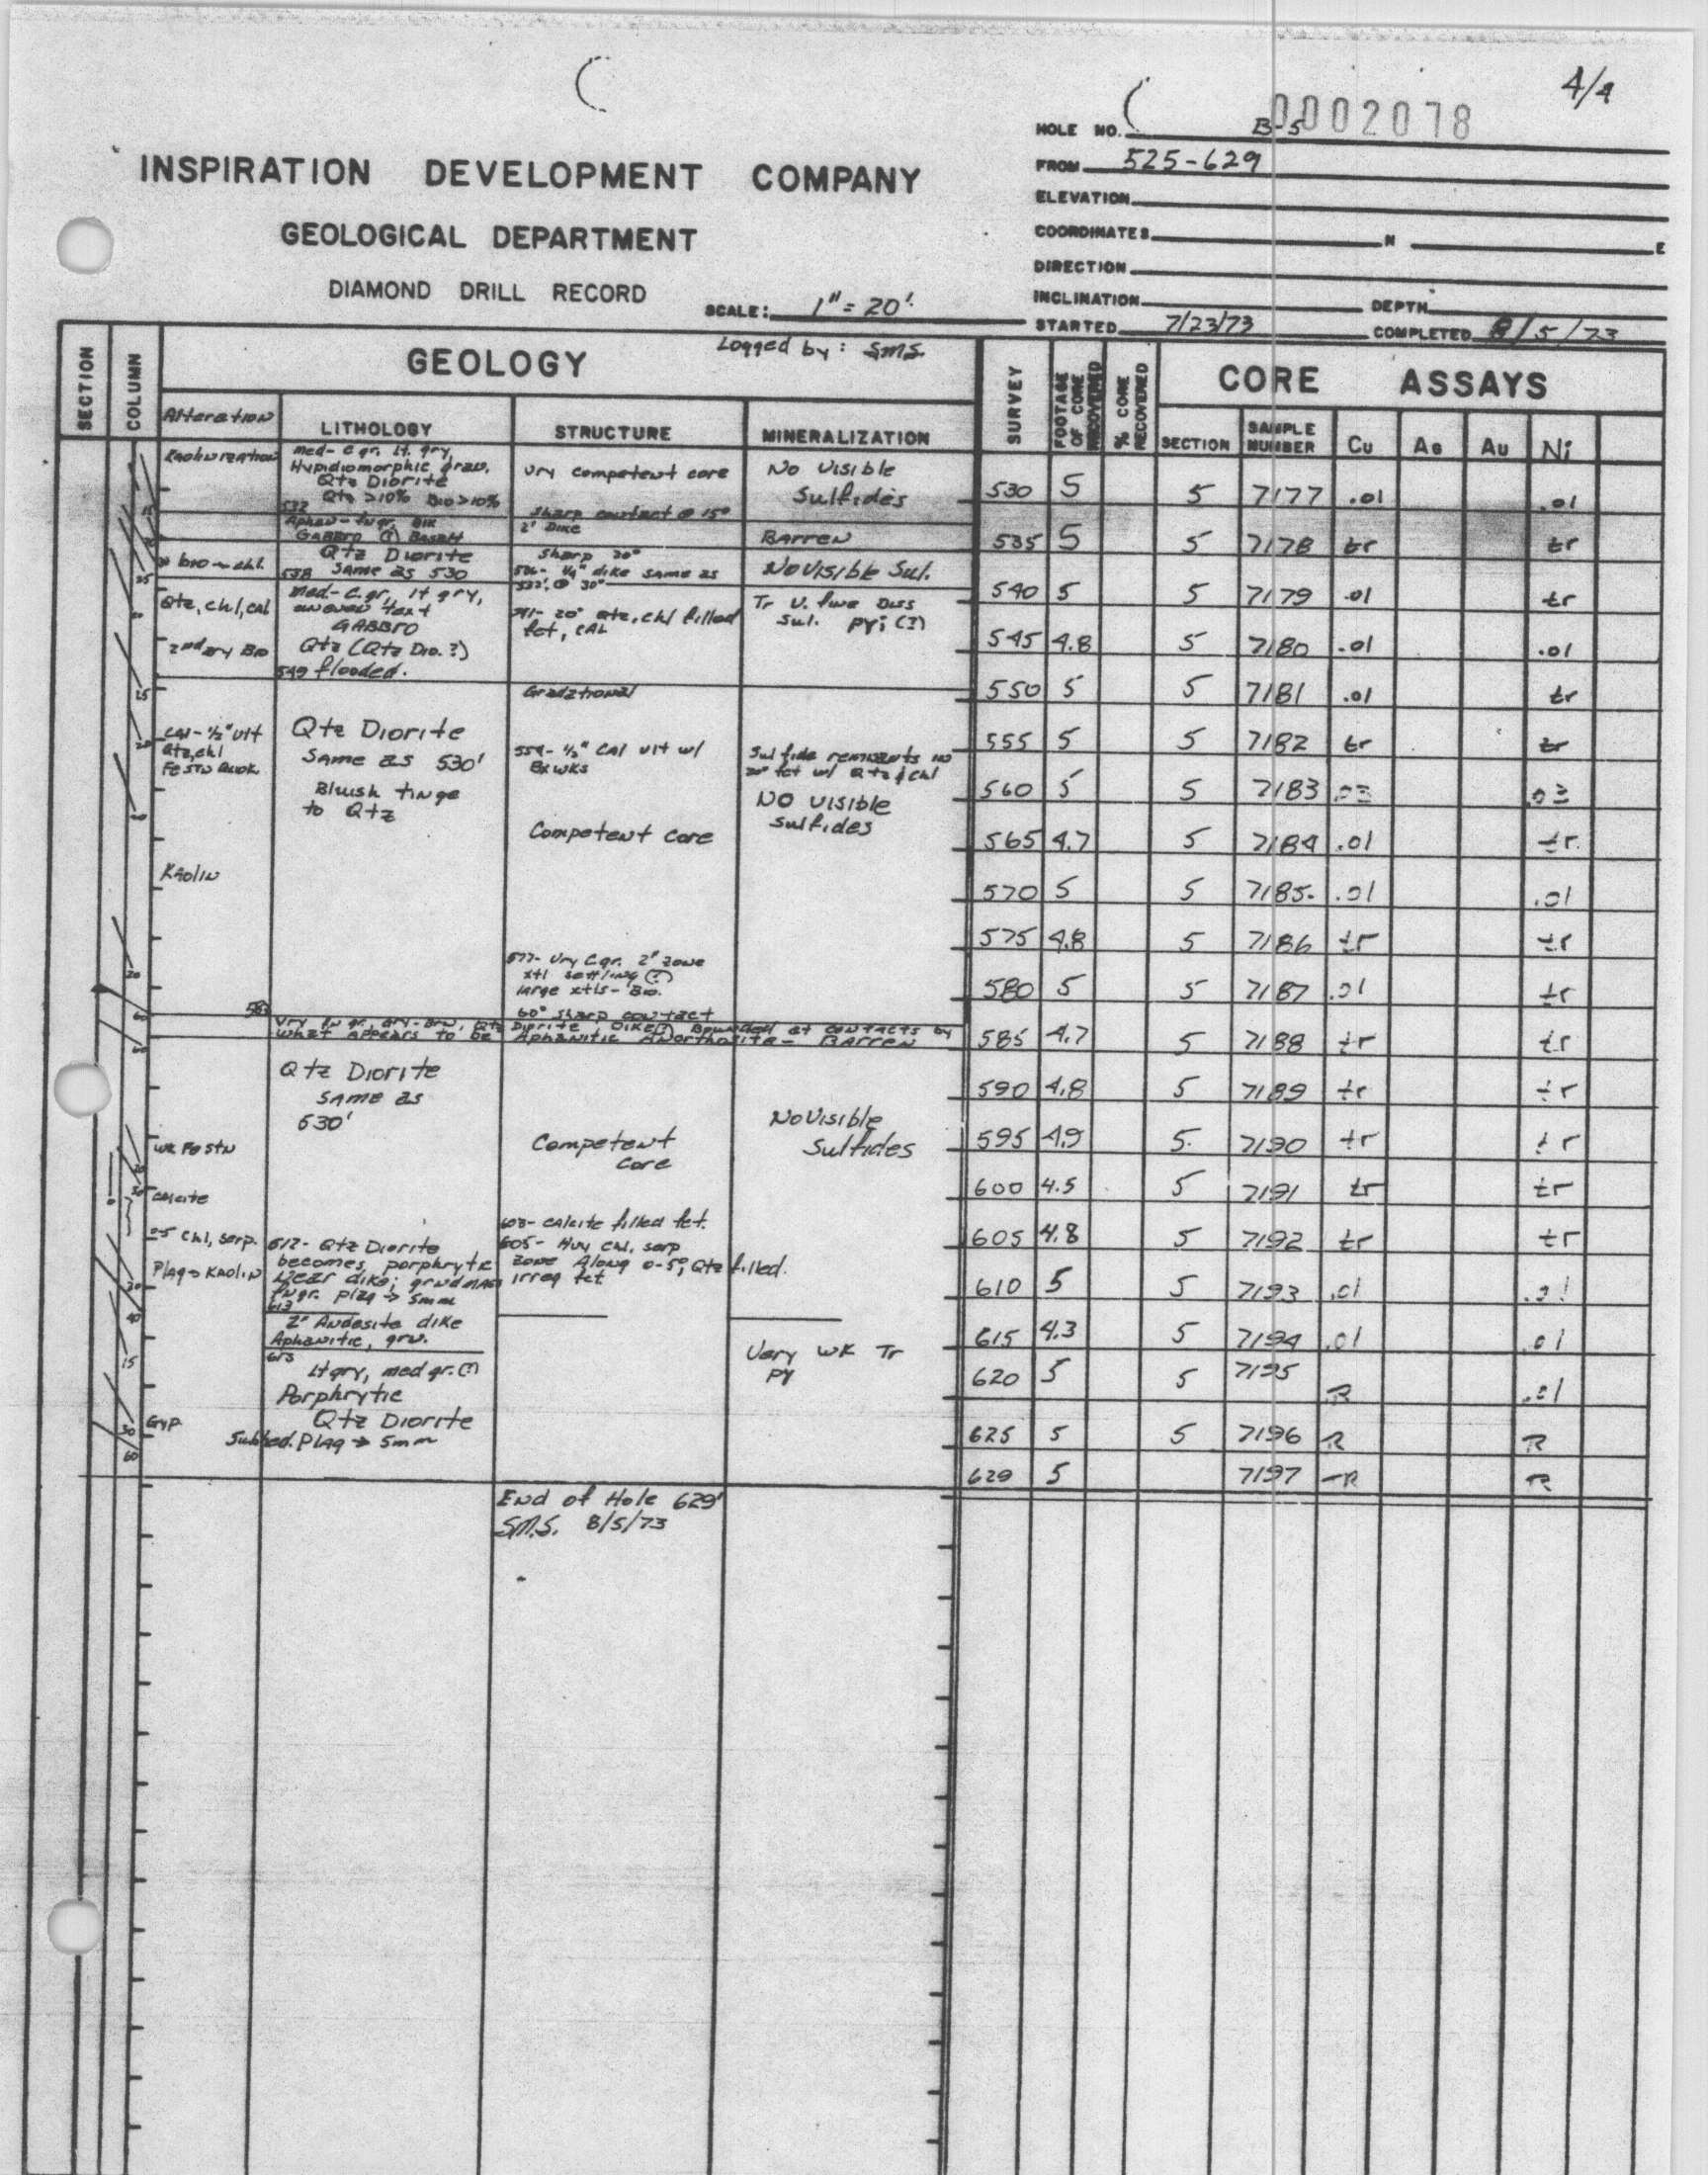 4/4
0002078
HOLE NO. B-5
INSPIRATION DEVELOPMENT COMPANY
FROM 525-629
ELEVATION
GEOLOGICAL DEPARTMENT
COORDINATES N E
DIRECTION
DIAMOND DRILL RECORD
SCALE: 1" = 20'
INCLINATION DEPTH
STARTED 7/23/73 COMPLETED 8/5/73
SECTION
COLUMN
GEOLOGY
Logged by: SMS.
SURVEY
FOOTAGE OF CORE RECOVERED
% CORE RECOVERED
CORE ASSAYS
Alteration LITHOLOGY STRUCTURE MINERALIZATION
SECTION SAMPLE NUMBER Cu Ag Au Ni
Kaolinization
med-c gr. lt. gry,
Hypidiomorphic gran.
Qtz Diorite
Qtz >10% Bio >10%
532
Vry competent core
Sharp contact @ 15°
No visible
Sulfides
530 5 5 7177 .01 .01
GABBRO (?) Basalt
2' Dike
BARREN
535 5 5 7178 tr tr
bio → chl.
Qtz Diorite
538 Same as 530
Sharp 20°
536- 1/4" dike same as
532', @ 30°
No visible Sul.
540 5 5 7179 .01 tr
Qtz, chl, cal
2ndary Bio
med-c.gr, lt gry,
uneven text
GABBRO
Qtz (Qtz Dio.?)
549 flooded.
541- 20° qtz, chl filled
fct, CAL
Tr V. fine Diss
Sul. py; (?)
545 4.8 5 7180 .01 .01
Gradational
550 5 5 7181 .01 tr
CAl- 1/2" vlt
Qtz, chl
Qtz Diorite
Same as 530'
Bluish tinge
to Qtz
554- 1/2" CAl vlt w/
Bxwks
Sulfide remnants in
20° fct w/ Qtz & chl
No visible
sulfides
555 5 5 7182 tr tr
560 5 5 7183 .03 .03
Competent core
565 4.7 5 7184 .01 tr
Kaolin
570 5 5 7185 .01 .01
575 4.8 5 7186 tr tr
577- Vry C.gr. 2" zone
xtl settling (?)
large xtls- Bio.
60° sharp contact
580 5 5 7187 .01 tr
Vry fn gr. gry-brn, Qtz Diorite Dike(?) Bounded at contacts by
what appears to be Aphanitic Anorthosite - Barren
585 4.7 5 7188 tr tr
Qtz Diorite
same as
530'
590 4.8 5 7189 tr tr
No Visible
Sulfides
wk Fe stn
Competent
core
595 4.9 5 7190 tr tr
calcite
600 4.5 5 7191 tr tr
603- calcite filled fct.
0-5 Chl, serp.
605- Hvy chl, serp
zone Along 0-5°, Qtz filled.
irreg fct
605 4.8 5 7192 tr tr
Plag → Kaolin
612- Qtz Diorite
becomes porphrytic
Near dike; grndmass
fn gr. plag → 5mm
613
610 5 5 7193 .01 .01
2" Andesite dike
Aphanitic, grn.
613
615 4.3 5 7194 .01 .01
Very wk Tr
py
lt gry, med gr. (?)
Porphrytic
Qtz Diorite
Subhed. Plag → 5mm
620 5 5 7195 TR .01
Gyp
625 5 5 7196 TR TR
629 5 7197 TR TR
End of Hole 629'
SM.S. 8/5/73